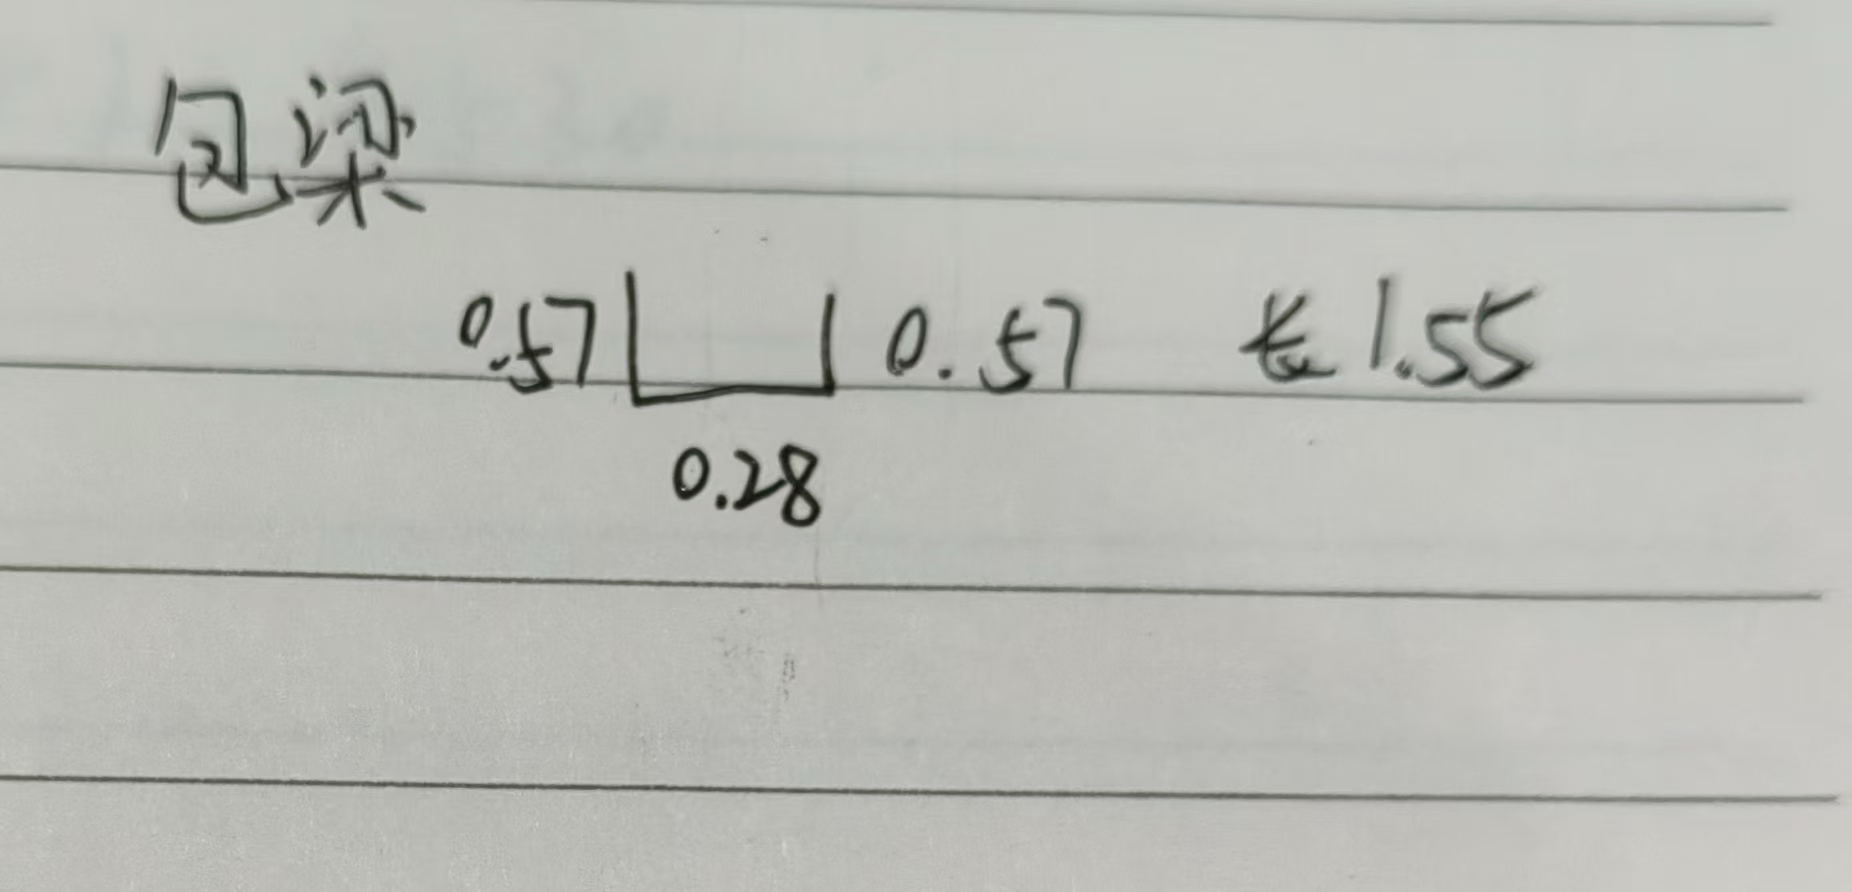 包梁
0.57 0.57 长1.55
0.28